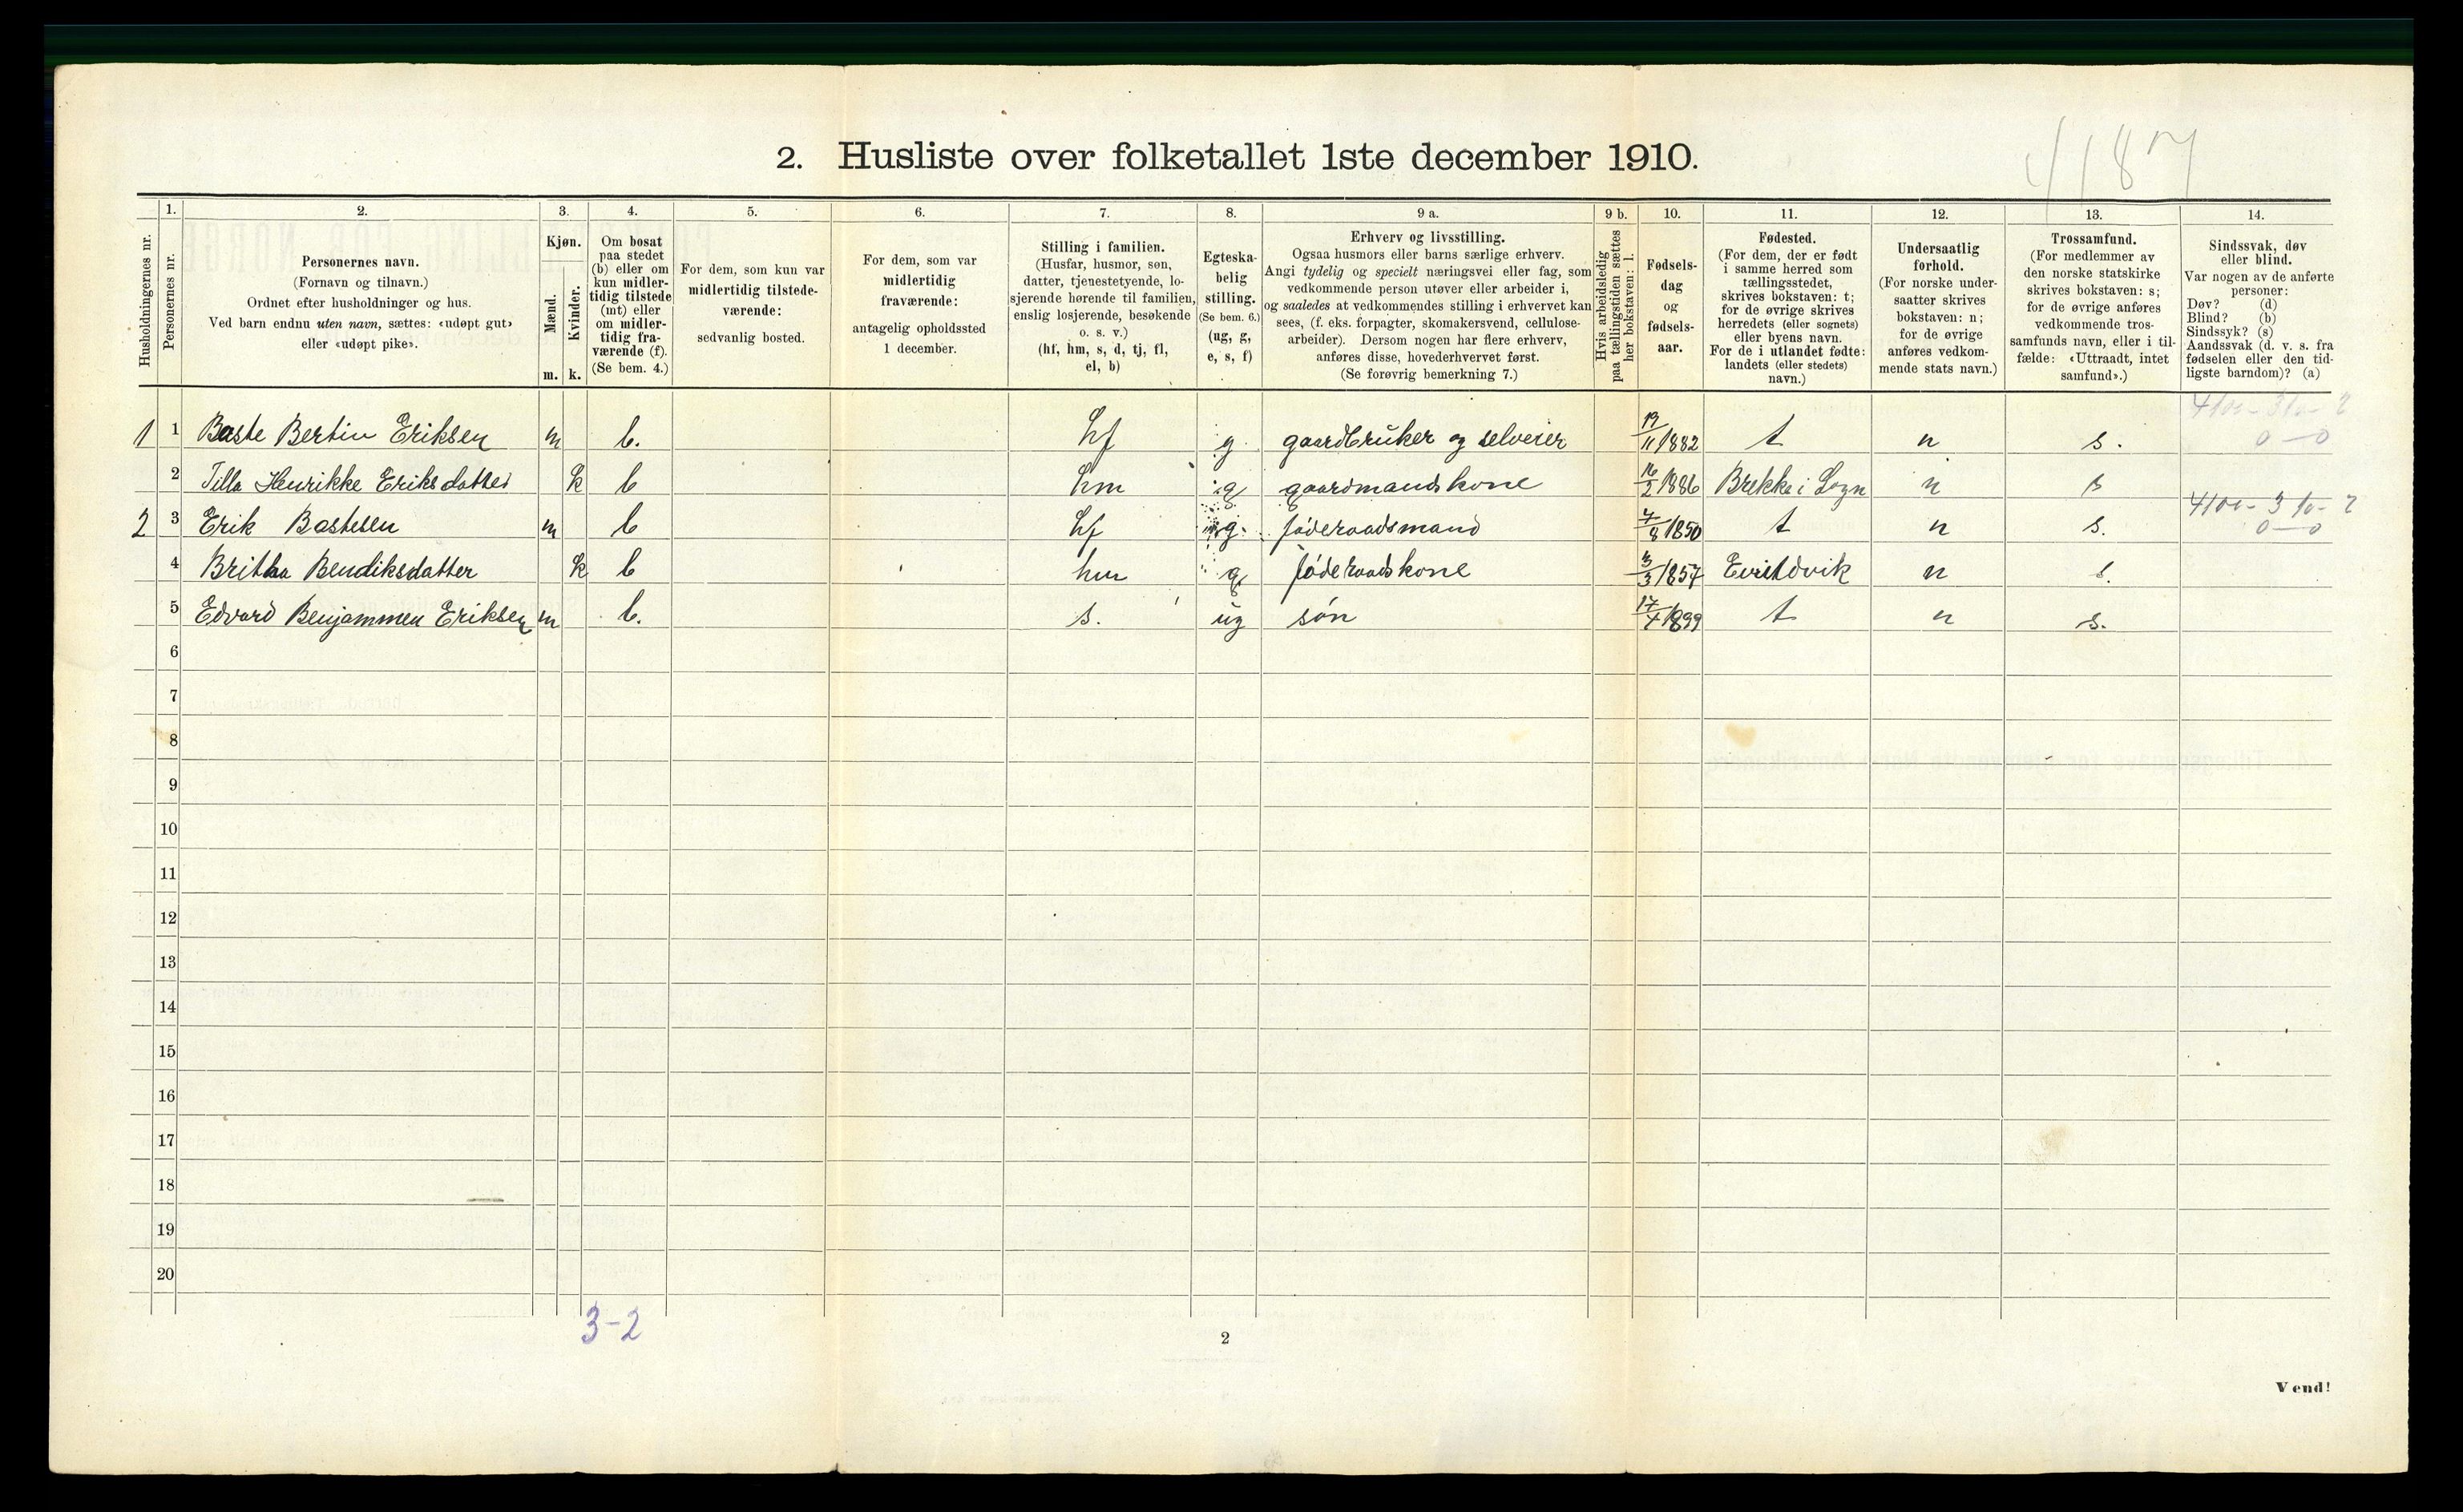 2. Husliste over folketallet 1ste december 1910.
1. 2. 3. 4. 5. 6. 7. 8. 9 a. 9 b. 10. 11. 12. 13. 14.
Husholdningernes nr.
Personernes nr.
Personernes navn.
(Fornavn og tilnavn.)
Ordnet efter husholdninger og hus.
Ved barn endnu uten navn, sættes: «udøpt gut»
eller «udøpt pike».
Kjøn.
Mænd.
Kvinder.
m. k.
Om bosat
paa stedet
(b) eller om
kun midler-
tidig tilstede
(mt) eller
om midler-
tidig fra-
værende (f).
(Se bem. 4.)
For dem, som kun var
midlertidig tilstede-
værende:
sedvanlig bosted.
For dem, som var
midlertidig
fraværende:
antagelig opholdssted
1 december.
Stilling i familien.
(Husfar, husmor, søn,
datter, tjenestetyende, lo-
sjerende hørende til familien,
enslig losjerende, besøkende
o. s. v.)
(hf, hm, s, d, tj, fl,
el, b)
Egteska-
belig
stilling.
(Se bem. 6.)
(ug, g,
e, s, f)
Erhverv og livsstilling.
Ogsaa husmors eller barns særlige erhverv.
Angi tydelig og specielt næringsvei eller fag, som
vedkommende person utøver eller arbeider i,
og saaledes at vedkommendes stilling i erhvervet kan
sees, (f. eks. forpagter, skomakersvend, cellulose-
arbeider). Dersom nogen har flere erhverv,
anføres disse, hovederhvervet først.
(Se forøvrig bemerkning 7.)
Hvis arbeidsledig
paa tællingstiden sættes
her bokstaven: l.
Fødsels-
dag
og
fødsels-
aar.
Fødested.
(For dem, der er født
i samme herred som
tællingsstedet,
skrives bokstaven: t;
for de øvrige skrives
herredets (eller sognets)
eller byens navn.
For de i utlandet fødte:
landets (eller stedets)
navn.)
Undersaatlig
forhold.
(For norske under-
saatter skrives
bokstaven: n;
for de øvrige
anføres vedkom-
mende stats navn.)
Trossamfund.
(For medlemmer av
den norske statskirke
skrives bokstaven: s;
for de øvrige anføres
vedkommende tros-
samfunds navn, eller i til-
fælde: «Uttraadt, intet
samfund».)
Sindssvak, døv
eller blind.
Var nogen av de anførte
personer:
Døv? (d)
Blind? (b)
Sindssyk? (s)
Aandssvak (d. v. s. fra
fødselen eller den tid-
ligste barndom)? (a)
0—0
1 1 Baste Bertin Eriksen m b. hf g. gaardbruker og selveier 19/11 1882 t n s.
2 Tilla Henrikke Eriksdatter k b hm g gaardmandskone 16/2 1886 Brekke i Sogn n s
0—0
2 3 Erik Bastesen m b hf g. føderaadsmand 7/8 1850 t n s.
4 Britha Bendiksdatter k b hm g føderaadskone 3/3 1857 Evindvik n s.
5 Edvard Benjammen Eriksen m b. s. ug søn 17/4 1899 t n s.
6
7
8
9
10
11
12
13
14
15
16
17
18
19
20
3-2
2
Vend!